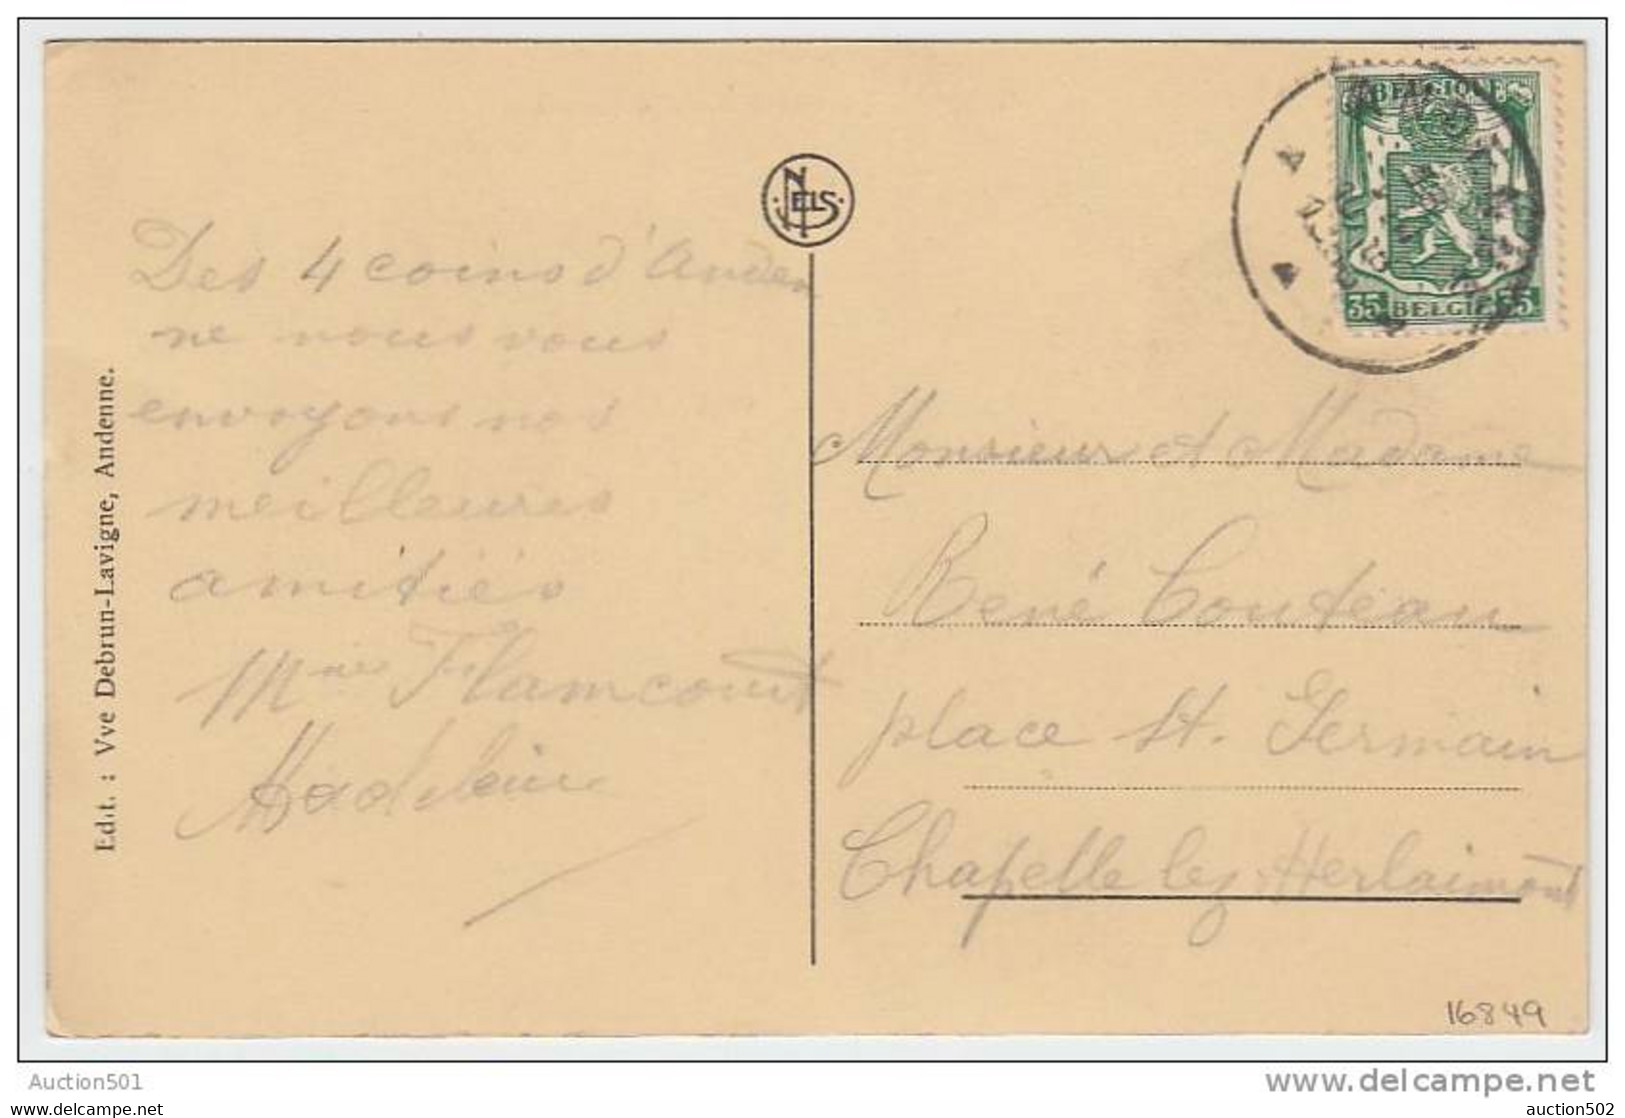 Des 4 coins d'Anden
ne nous vous
envoyons nos
meilleures
amitiés
Mme Flamcourt
Madeleine
Edit. : Vve Debrun-Lavigne, Andenne.
NELS
BELGIQUE
35 BELGIE 35
Monsieur et Madame
René Couteau
place St. Germain
Chapelle lez Herlaimont
16849
Auction501
www.delcampe.net
auction502
www.delcampe.net
auction502